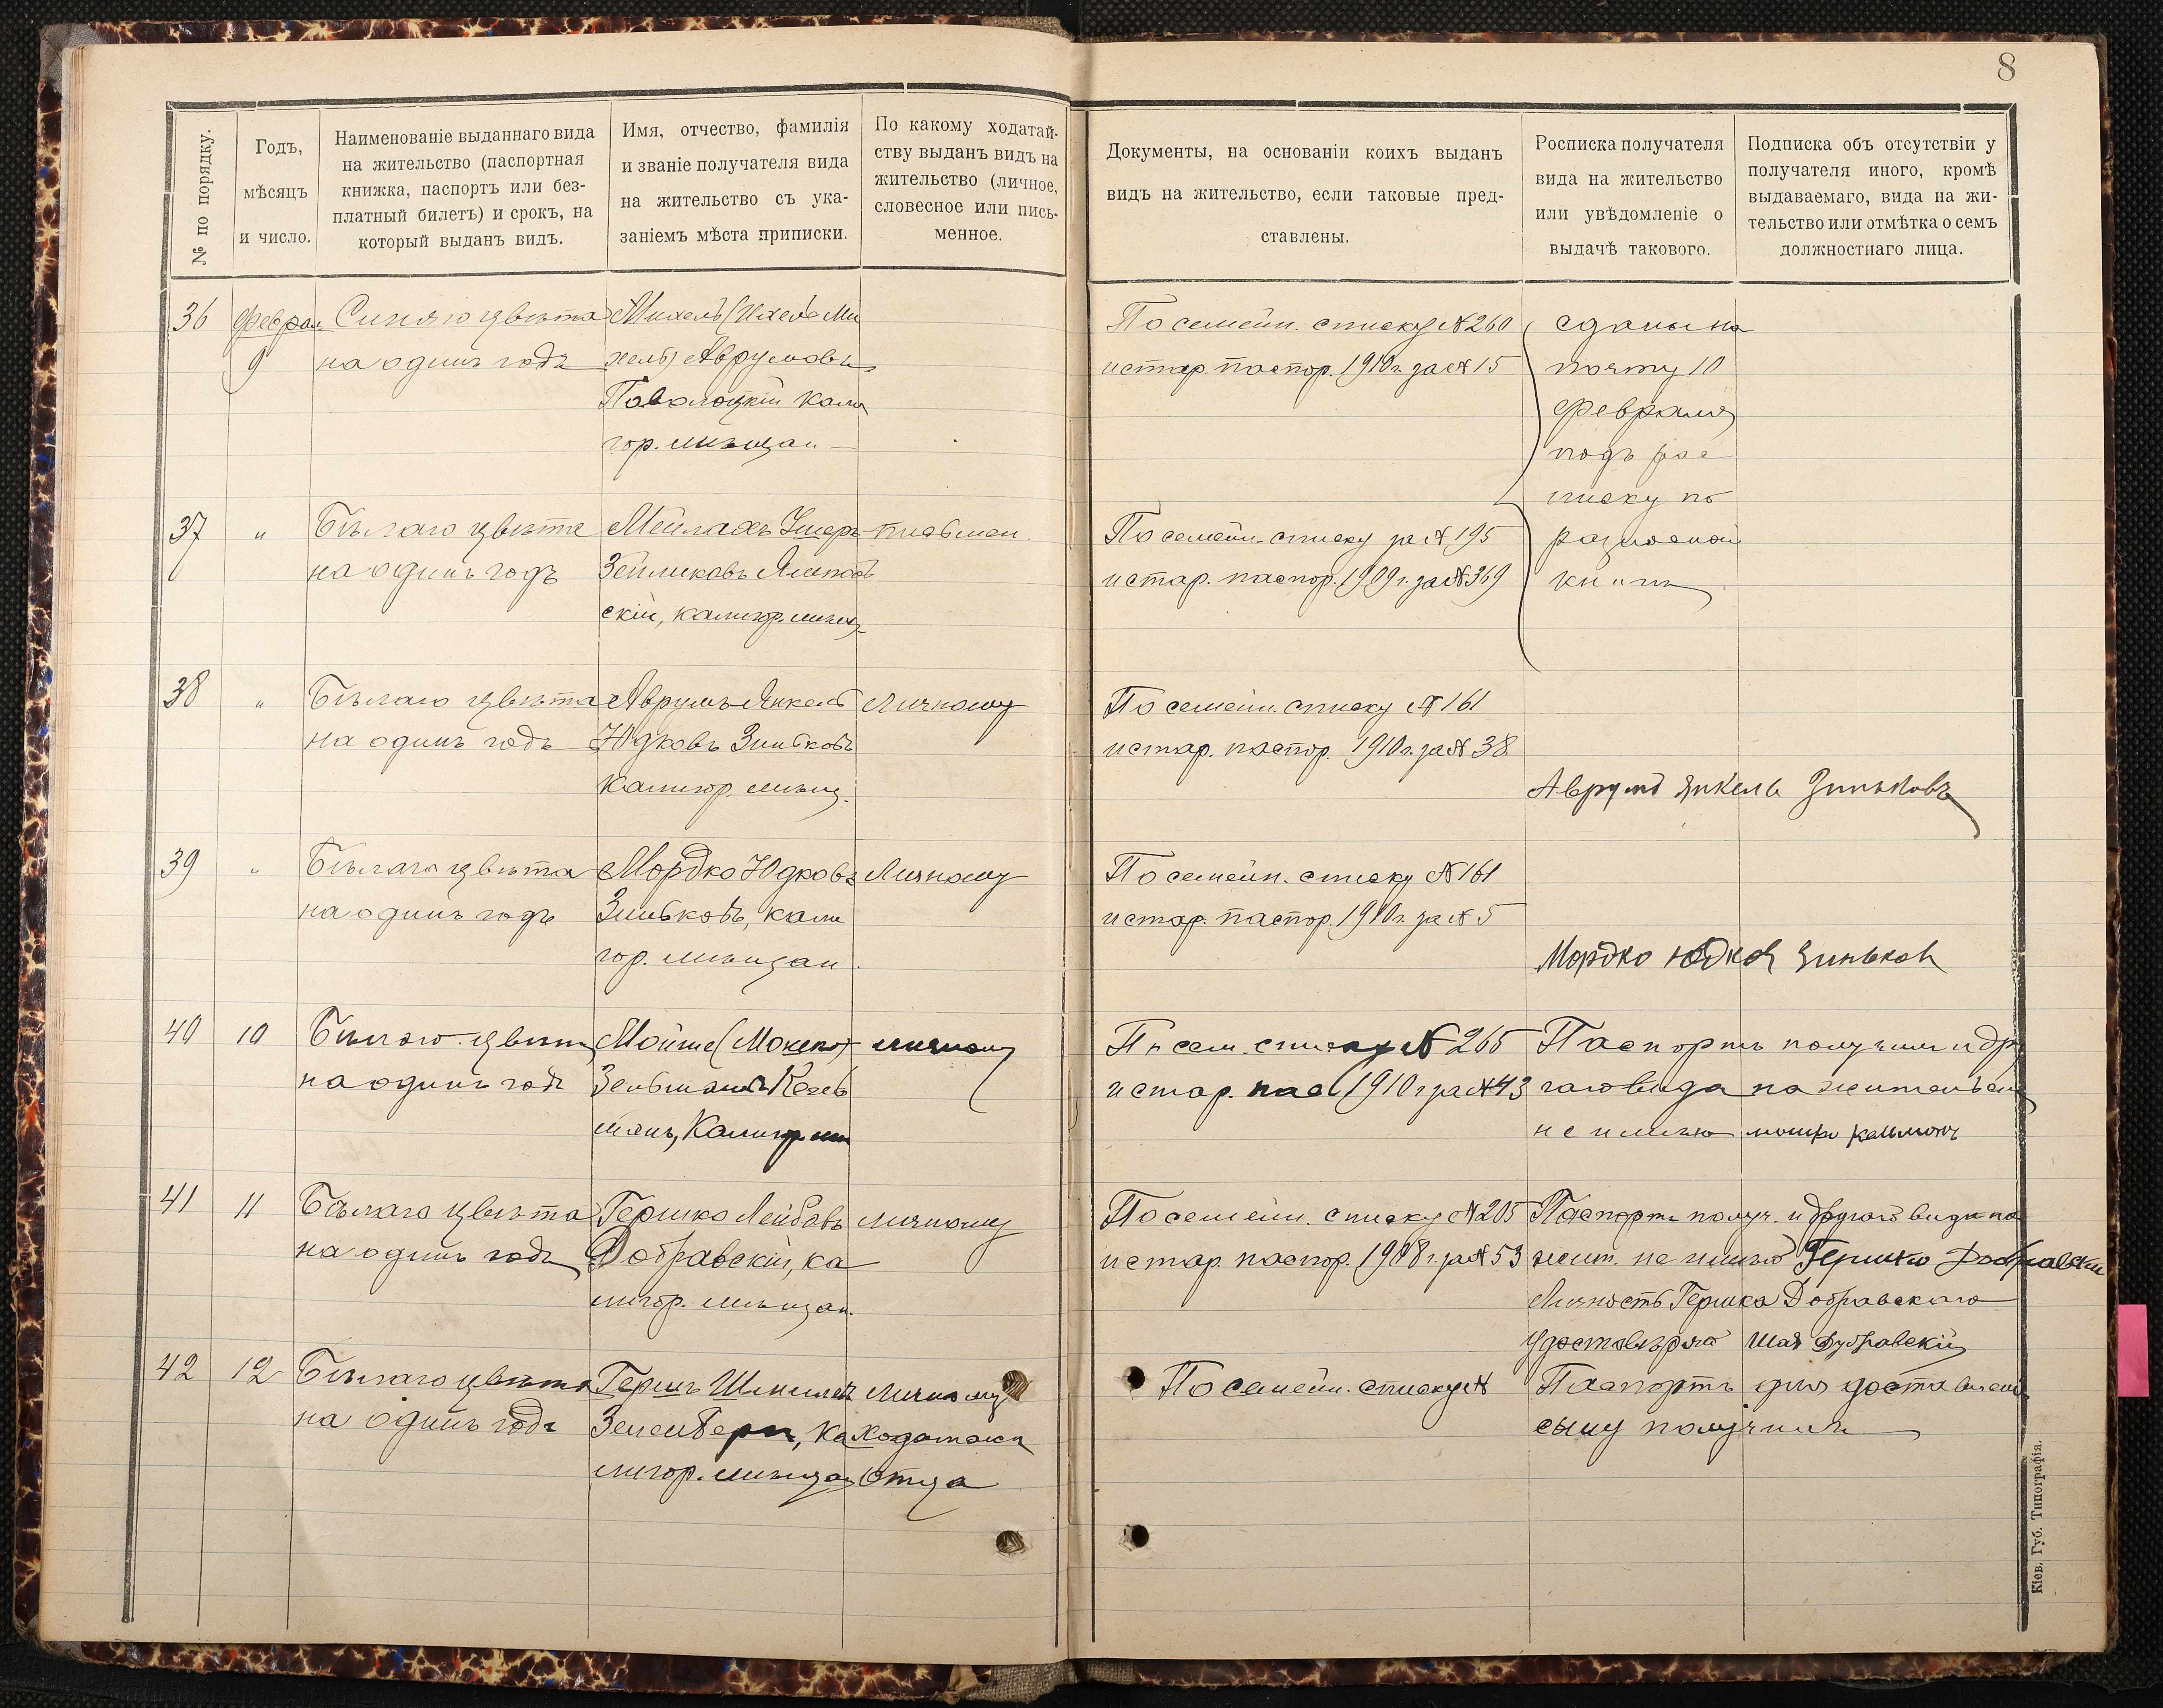 8
№ по порядку.
Годъ,
мѣсяцъ
и число.
Наименованіе выданнаго вида
на жительство (паспортная
книжка, паспортъ или без-
платный билетъ) и срокъ, на
который выданъ видъ.
Имя, отчество, фамилія
и званіе получателя вида
на жительство съ ука-
заніемъ мѣста приписки.
По какому ходатай-
ству выданъ видъ на
жительство (личное,
словесное или пись-
менное.
Документы, на основаніи коихъ выданъ
видъ на жительство, если таковые пред-
ставлены.
Росписка получателя
вида на жительство
или увѣдомленіе о
выдачѣ такового.
Подписка объ отсутствіи у
получателя иного, кромѣ
выдаваемаго, вида на жи-
тельство или отмѣтка о семъ
должностнаго лица.
36
Феврал
9
Синяго цвѣта
на одинъ годъ
Михель (Ихель Ми
хель) Аврумовъ
Паволоцкій кали
гор. мѣщан
По семейн. списку № 260
и стар. паспор. 1910 г. за № 15
сданы на
почту 10
февраля
подъ рас
писку по
разносной
книгѣ
37
"
Бѣлаго цвѣта
на одинъ годъ
Мейлахъ Умеръ
Зейликовъ
скій, калигор. мѣщ
письмен.
По семейн. списку за № 195
и стар. паспор. 1909 г. за № 369
38
"
Бѣлаго цвѣта
на одинъ годъ
Аврумъ-Янкель
Юдковъ Зиньковъ
Калигор. мѣщ.
личному
По семейн. списку № 161
и стар. паспор. 1910 г. за № 38
Аврумъ Янкель Зиньковъ
39
"
Бѣлаго цвѣта
на одинъ годъ
Мордко Юдковъ
Зиньковъ, кали
гор. мѣщан.
Личному
По семейн. списку № 161
и стар. паспор. 1910 г. за № 5
Мордко Юдков Зиньков
40
10
Бѣлаго цвѣта
на одинъ годъ
Мойше (Мошко)
Кельб
манъ, Калигор. мѣ
личному
По сем. списку № 265
и стар. пас 1910 г за № 43
Паспортъ получилъ и дру
гого вида на жительство
не имѣю мошко кельманъ
41
11
Бѣлаго цвѣта
на одинъ годъ
Гершко Лейбовъ
Добравскій, ка
лигор. мѣщан.
личному
По семейн. списку № 205
и стар. паспор. 1908 г. за № 53
Паспортъ получ. и другого вида на
жит. не имѣю Гершко Добравски
Личность Гершка Добравскаго
удостовѣряю Шая Дубравскій
42
12
Бѣлаго цвѣта
на одинъ годъ
Гершъ Шмилев
Зеленберг, ка
лигор. мѣщан
личному
ходатайст
отца
По семейн. списку №
Паспортъ для доставленія
сыну получилъ
Кіев. Губ. Типографія.